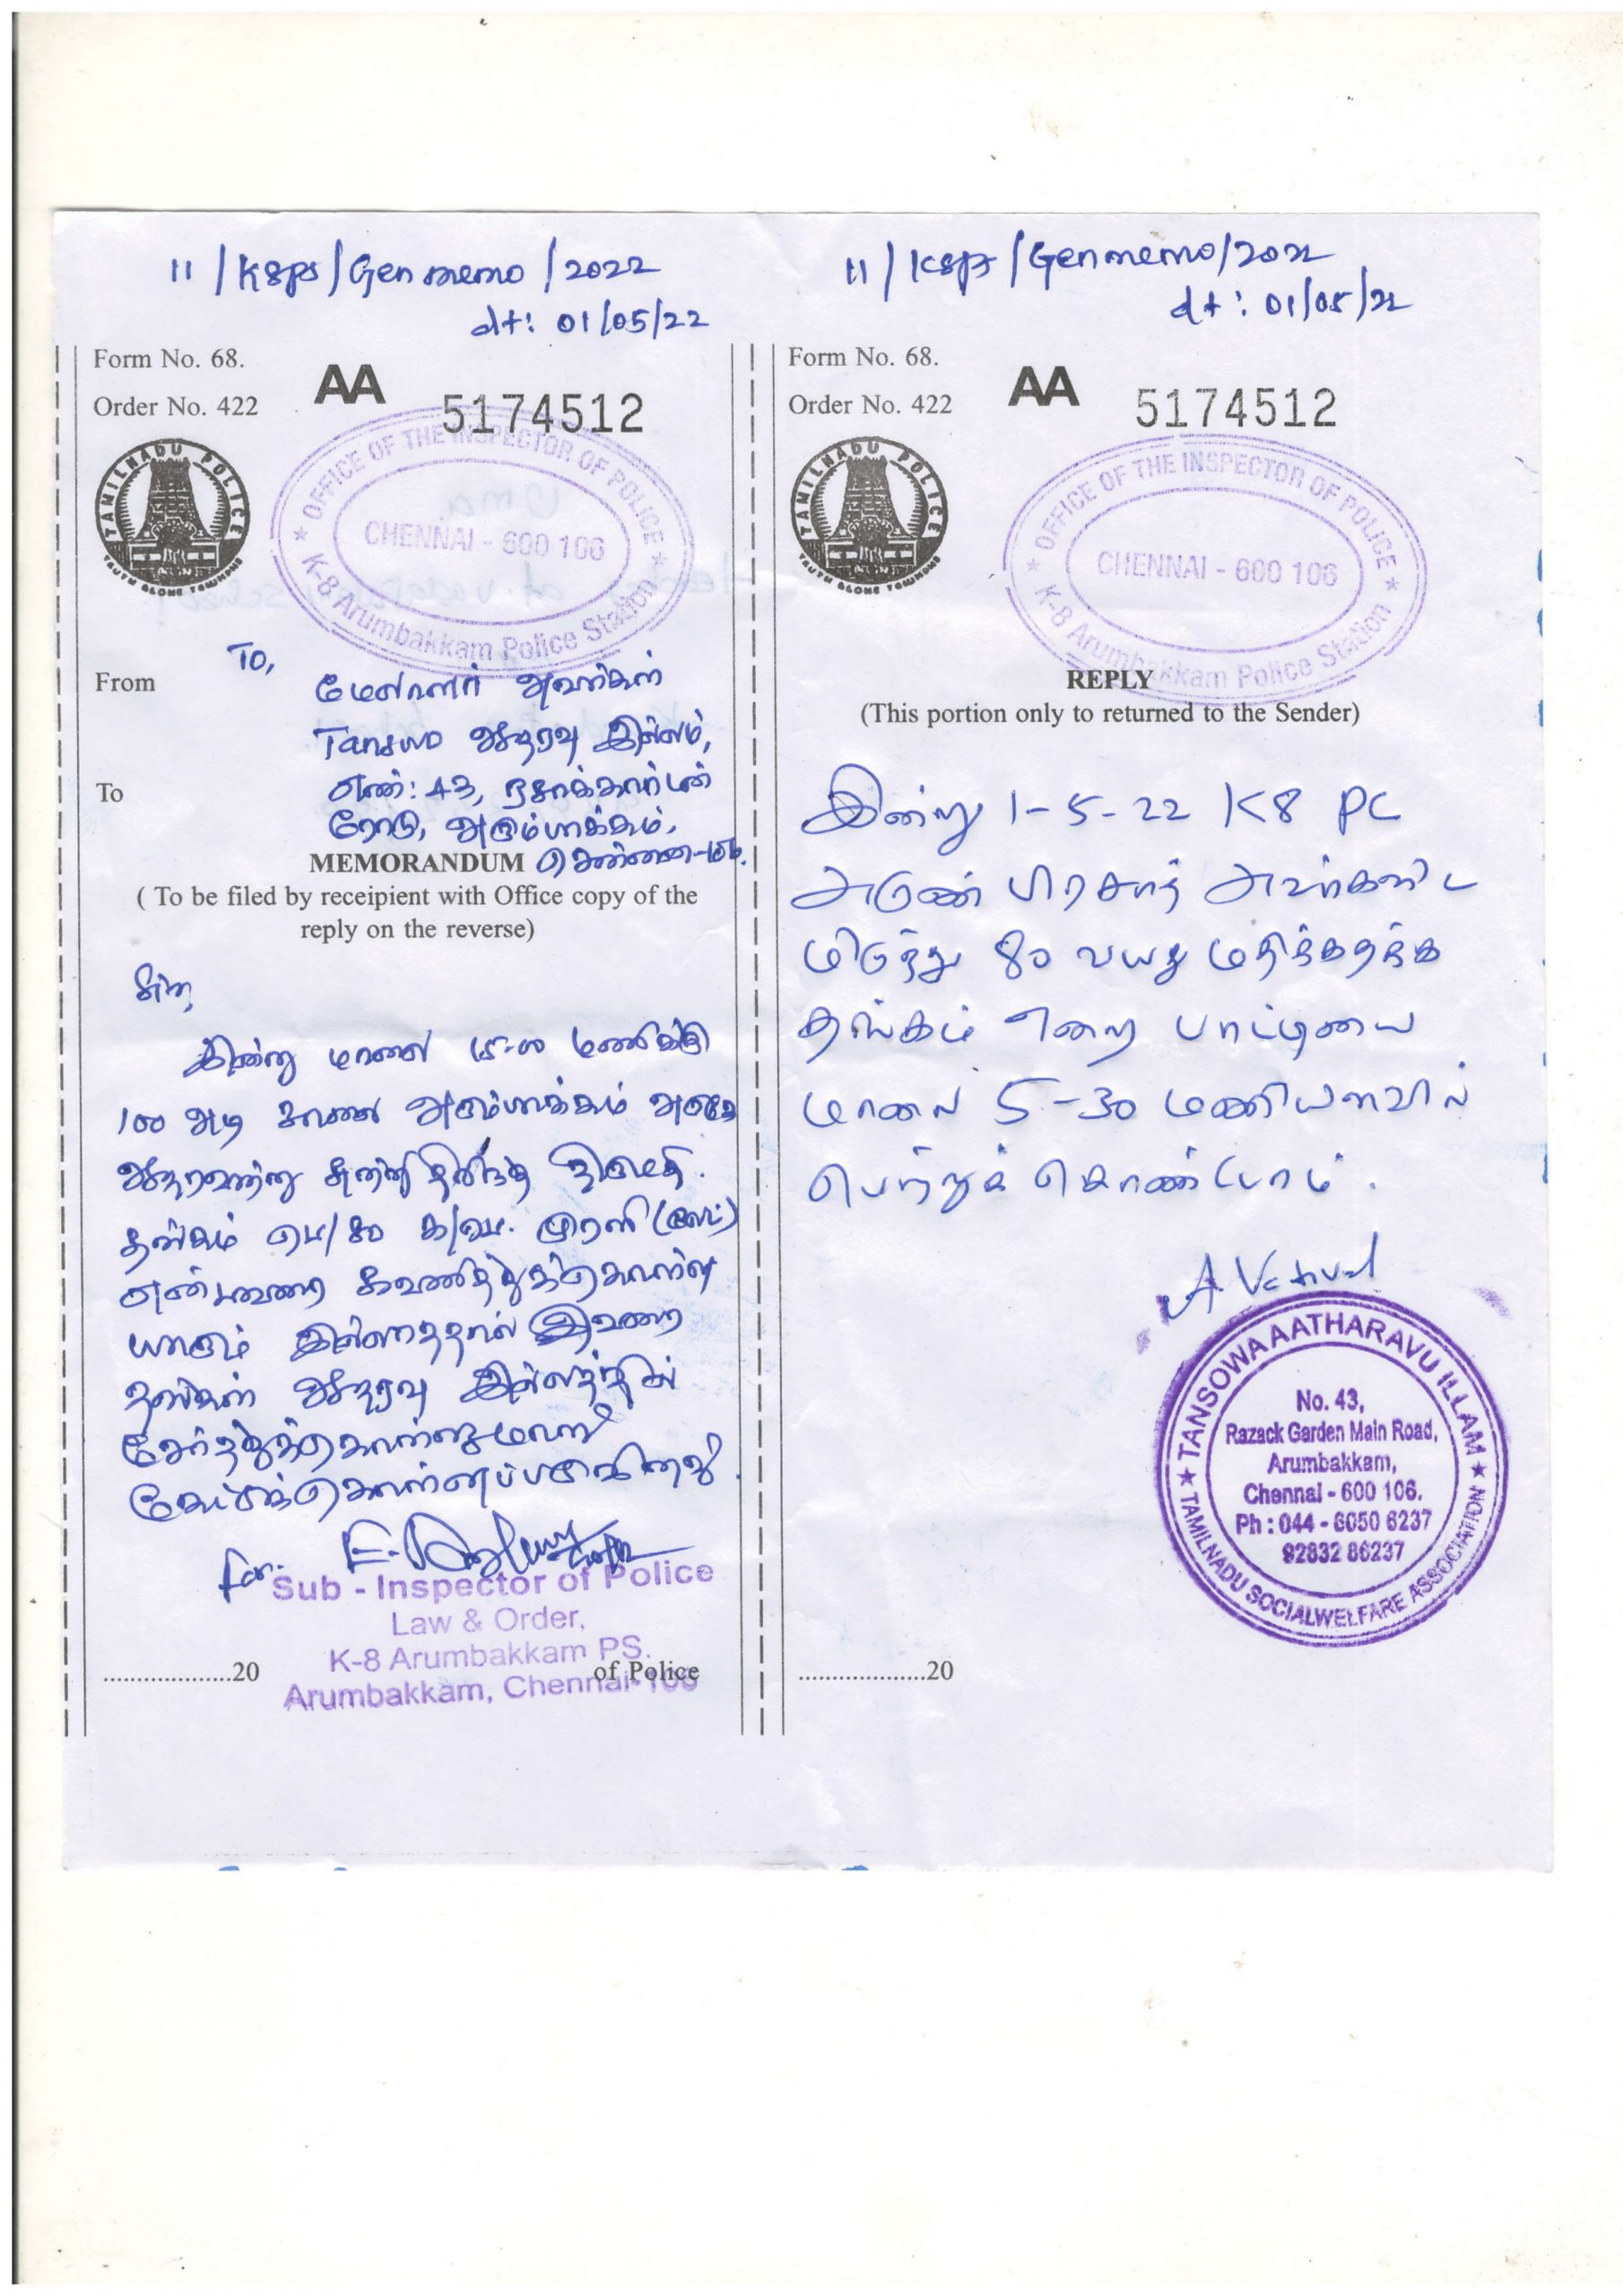 11/K8ps/Gen memo/2022
dt: 01/05/22
Form No. 68.
Order No. 422
AA
5174512
TAMILNADU POLICE
OFFICE OF THE INSPECTOR OF POLICE
CHENNAI - 600 106
K-8 Arumbakkam Police Station
To,
From
மேலாளர் அவர்கள்
ஆதரவு இல்லம்,
To
எண்: 43, ரசாக்கார்டன்
ரோடு, அரும்பாக்கம்,
MEMORANDUM சென்னை-106.
( To be filed by receipient with Office copy of the
reply on the reverse)
இன்று மாலை 15-00 மணிக்கு
100 அடி சாலை அரும்பாக்கம் அருகே
ஆதரவற்று சுற்றி திரிந்த திருமதி.
தங்கம் பெ/80 க/பெ. முரளி (லேட்)
என்பவரை கவணித்துக்கொள்ள
யாரும் இல்லாததால் இவரை
தங்கள் ஆதரவு இல்லத்தில்
சேர்த்துக்கொள்ளுமாறு
கேட்டுக்கொள்ளப்படுகிறது.
for:
Sub - Inspector of Police
Law & Order,
K-8 Arumbakkam PS.
Arumbakkam, Chennai-106
..................20
of Police
11/K8ps/Gen memo/2022
dt: 01/05/22
Form No. 68.
Order No. 422
AA
5174512
TAMILNADU POLICE
OFFICE OF THE INSPECTOR OF POLICE
CHENNAI - 600 106
K-8 Arumbakkam Police Station
REPLY
(This portion only to returned to the Sender)
இன்று 1-5-22 K8 PC
அருண் பிரசாத் அவர்களிட
மிருந்து 80 வயது மதிக்கதக்க
தங்கம் என்ற பாட்டியை
மாலை 5-30 மணியளவில்
பெற்றுக் கொண்டோம்.
TANSOWA AATHARAVU ILLAM
No. 43,
Razack Garden Main Road,
Arumbakkam,
Chennai - 600 106.
Ph : 044 - 6050 6237
92832 86237
TAMILNADU SOCIALWELFARE ASSOCIATION
..................20